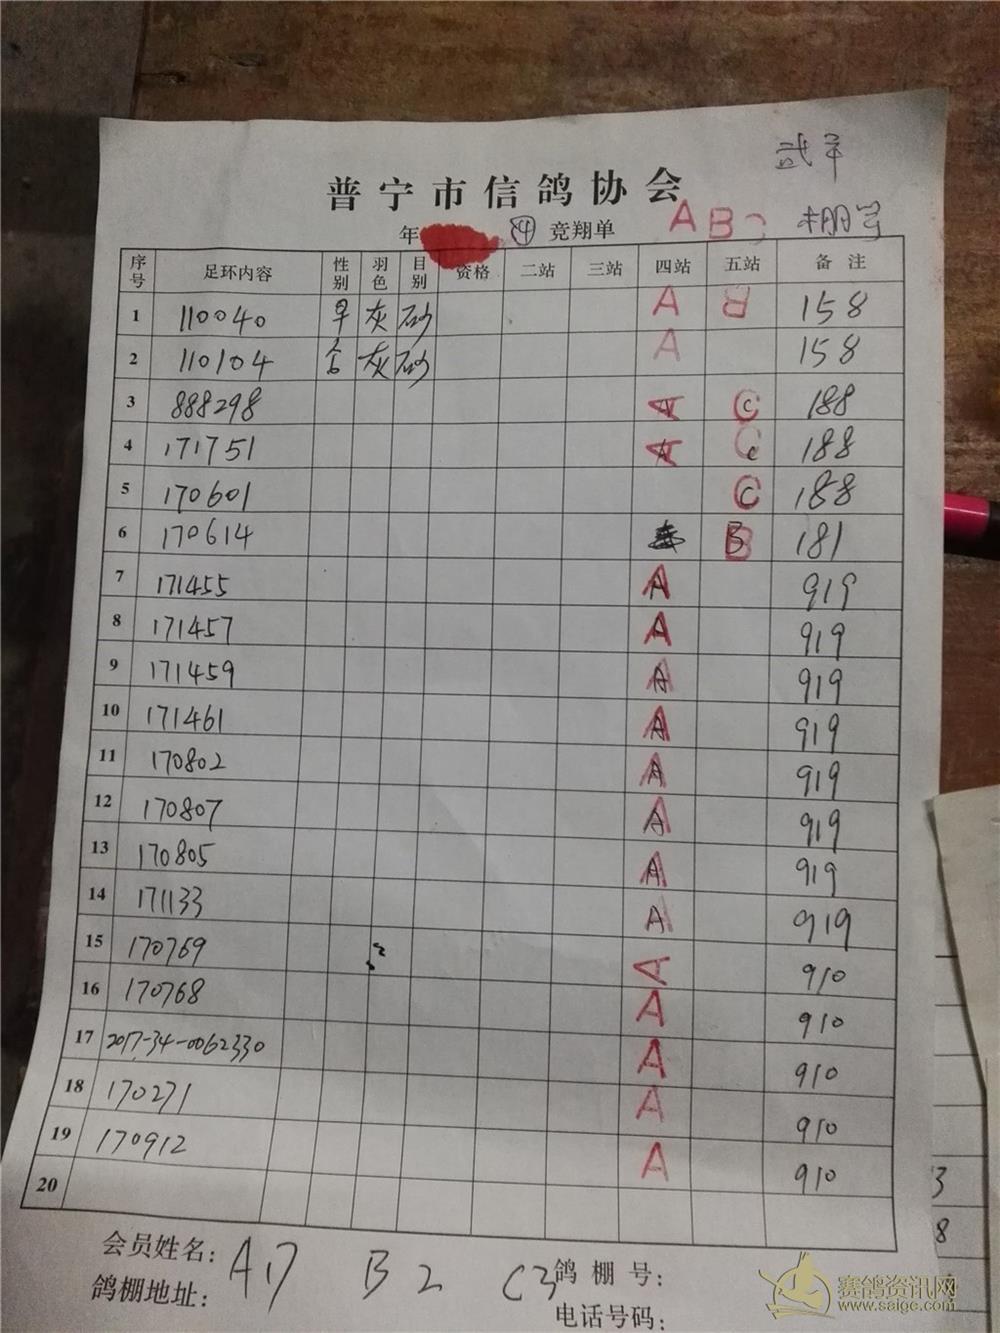 武平
普宁市信鸽协会
年 ④ 竞翔单 A B C 棚号
序号 足环内容 性别 羽色 目别 资格 二站 三站 四站 五站 备注
1 110040 灰 砂 A B 158
2 110104 灰 砂 A 158
3 888298 A C 188
4 171751 A C 188
5 170601 C 188
6 170614 B 181
7 171455 A 919
8 171457 A 919
9 171459 A 919
10 171461 A 919
11 170802 A 919
12 170807 A 919
13 170805 A 919
14 171133 A 919
15 170769 A 910
16 170768 A 910
17 2017-34-0062330 A 910
18 170271 A 910
19 170912 A 910
20
会员姓名: A17 B2 C3 鸽棚号:
鸽棚地址: 电话号码:
3
8
赛鸽资讯网
www.saige.com